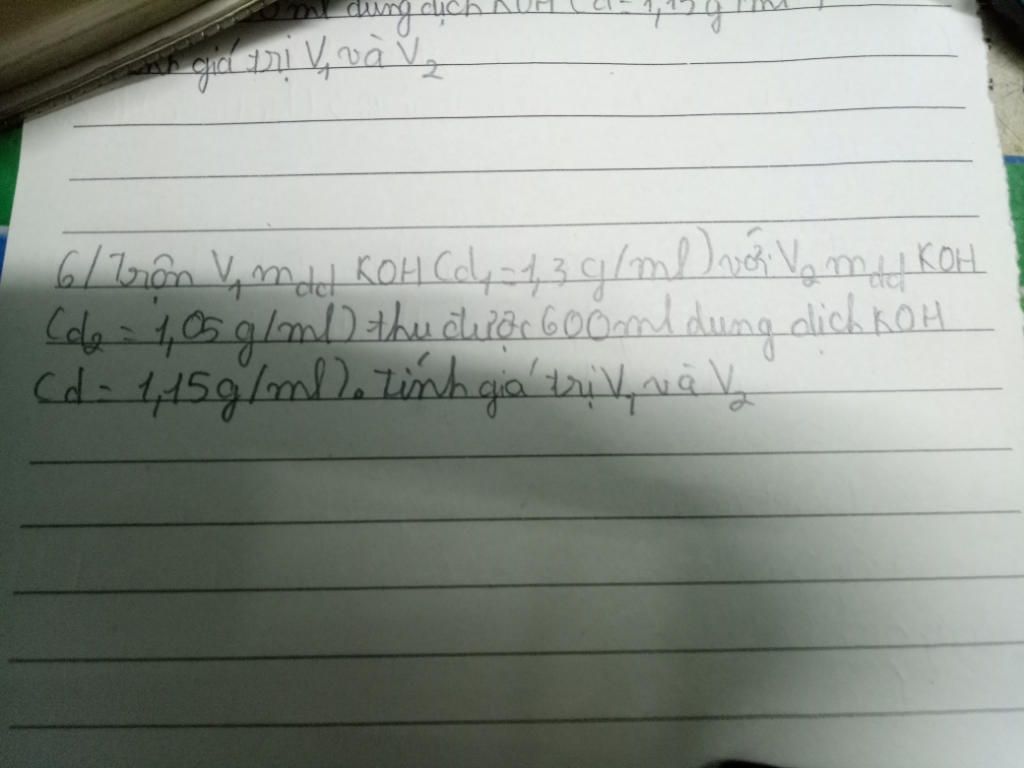 ml dung dịch KOH (d = 1,15g/ml)
giá trị V₁ và V₂
6/ Trộn V₁ mdd KOH (d₁ = 1,3 g/ml) với V₂ mdd KOH
(d₂ = 1,05 g/ml) thu được 600ml dung dịch KOH
(d = 1,15g/ml). tính giá trị V₁ và V₂